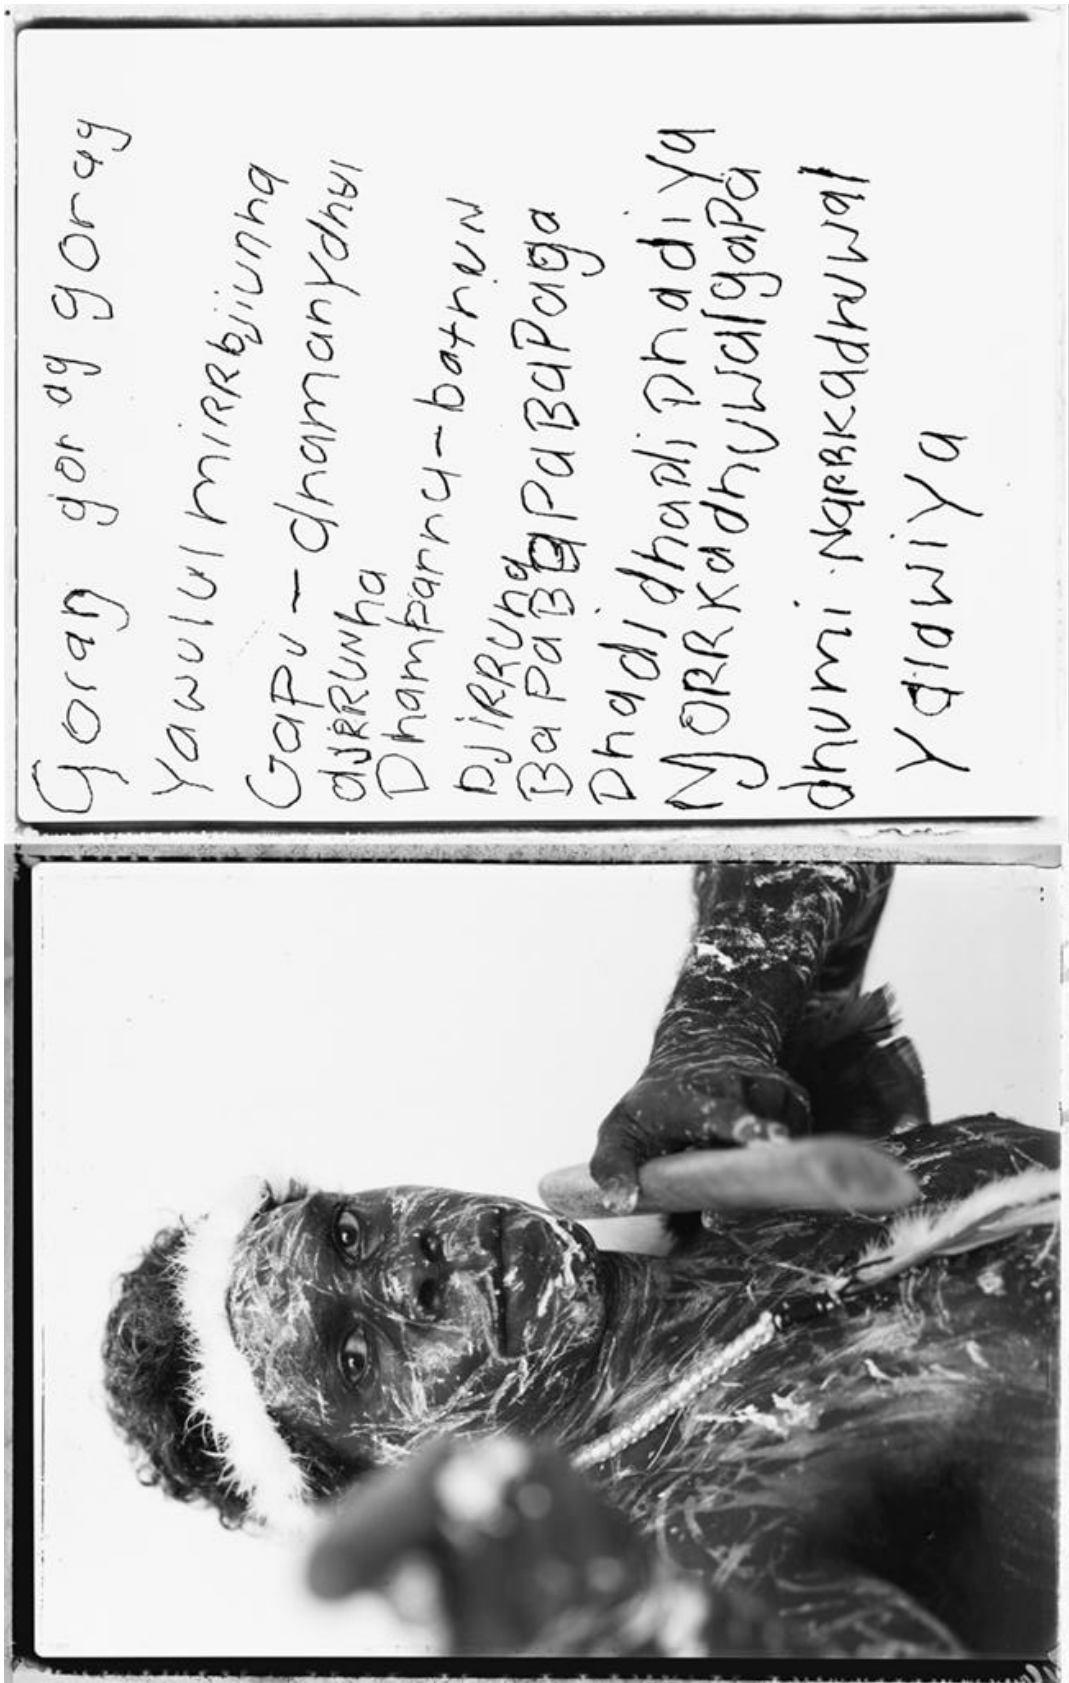 Goraŋ goraŋ goraŋ
Yawulul miRRbjiunha
GaPu - dhamanydhal
djRRUNha
DhamParny - bathuN
DjiRRUnha
BaPaBaPaBaPaga
Dhadi dhadi Dhadi Ya
ŊORRKadhuwalgaPa
dhumi NaRRKadhuwal
YalawiYa